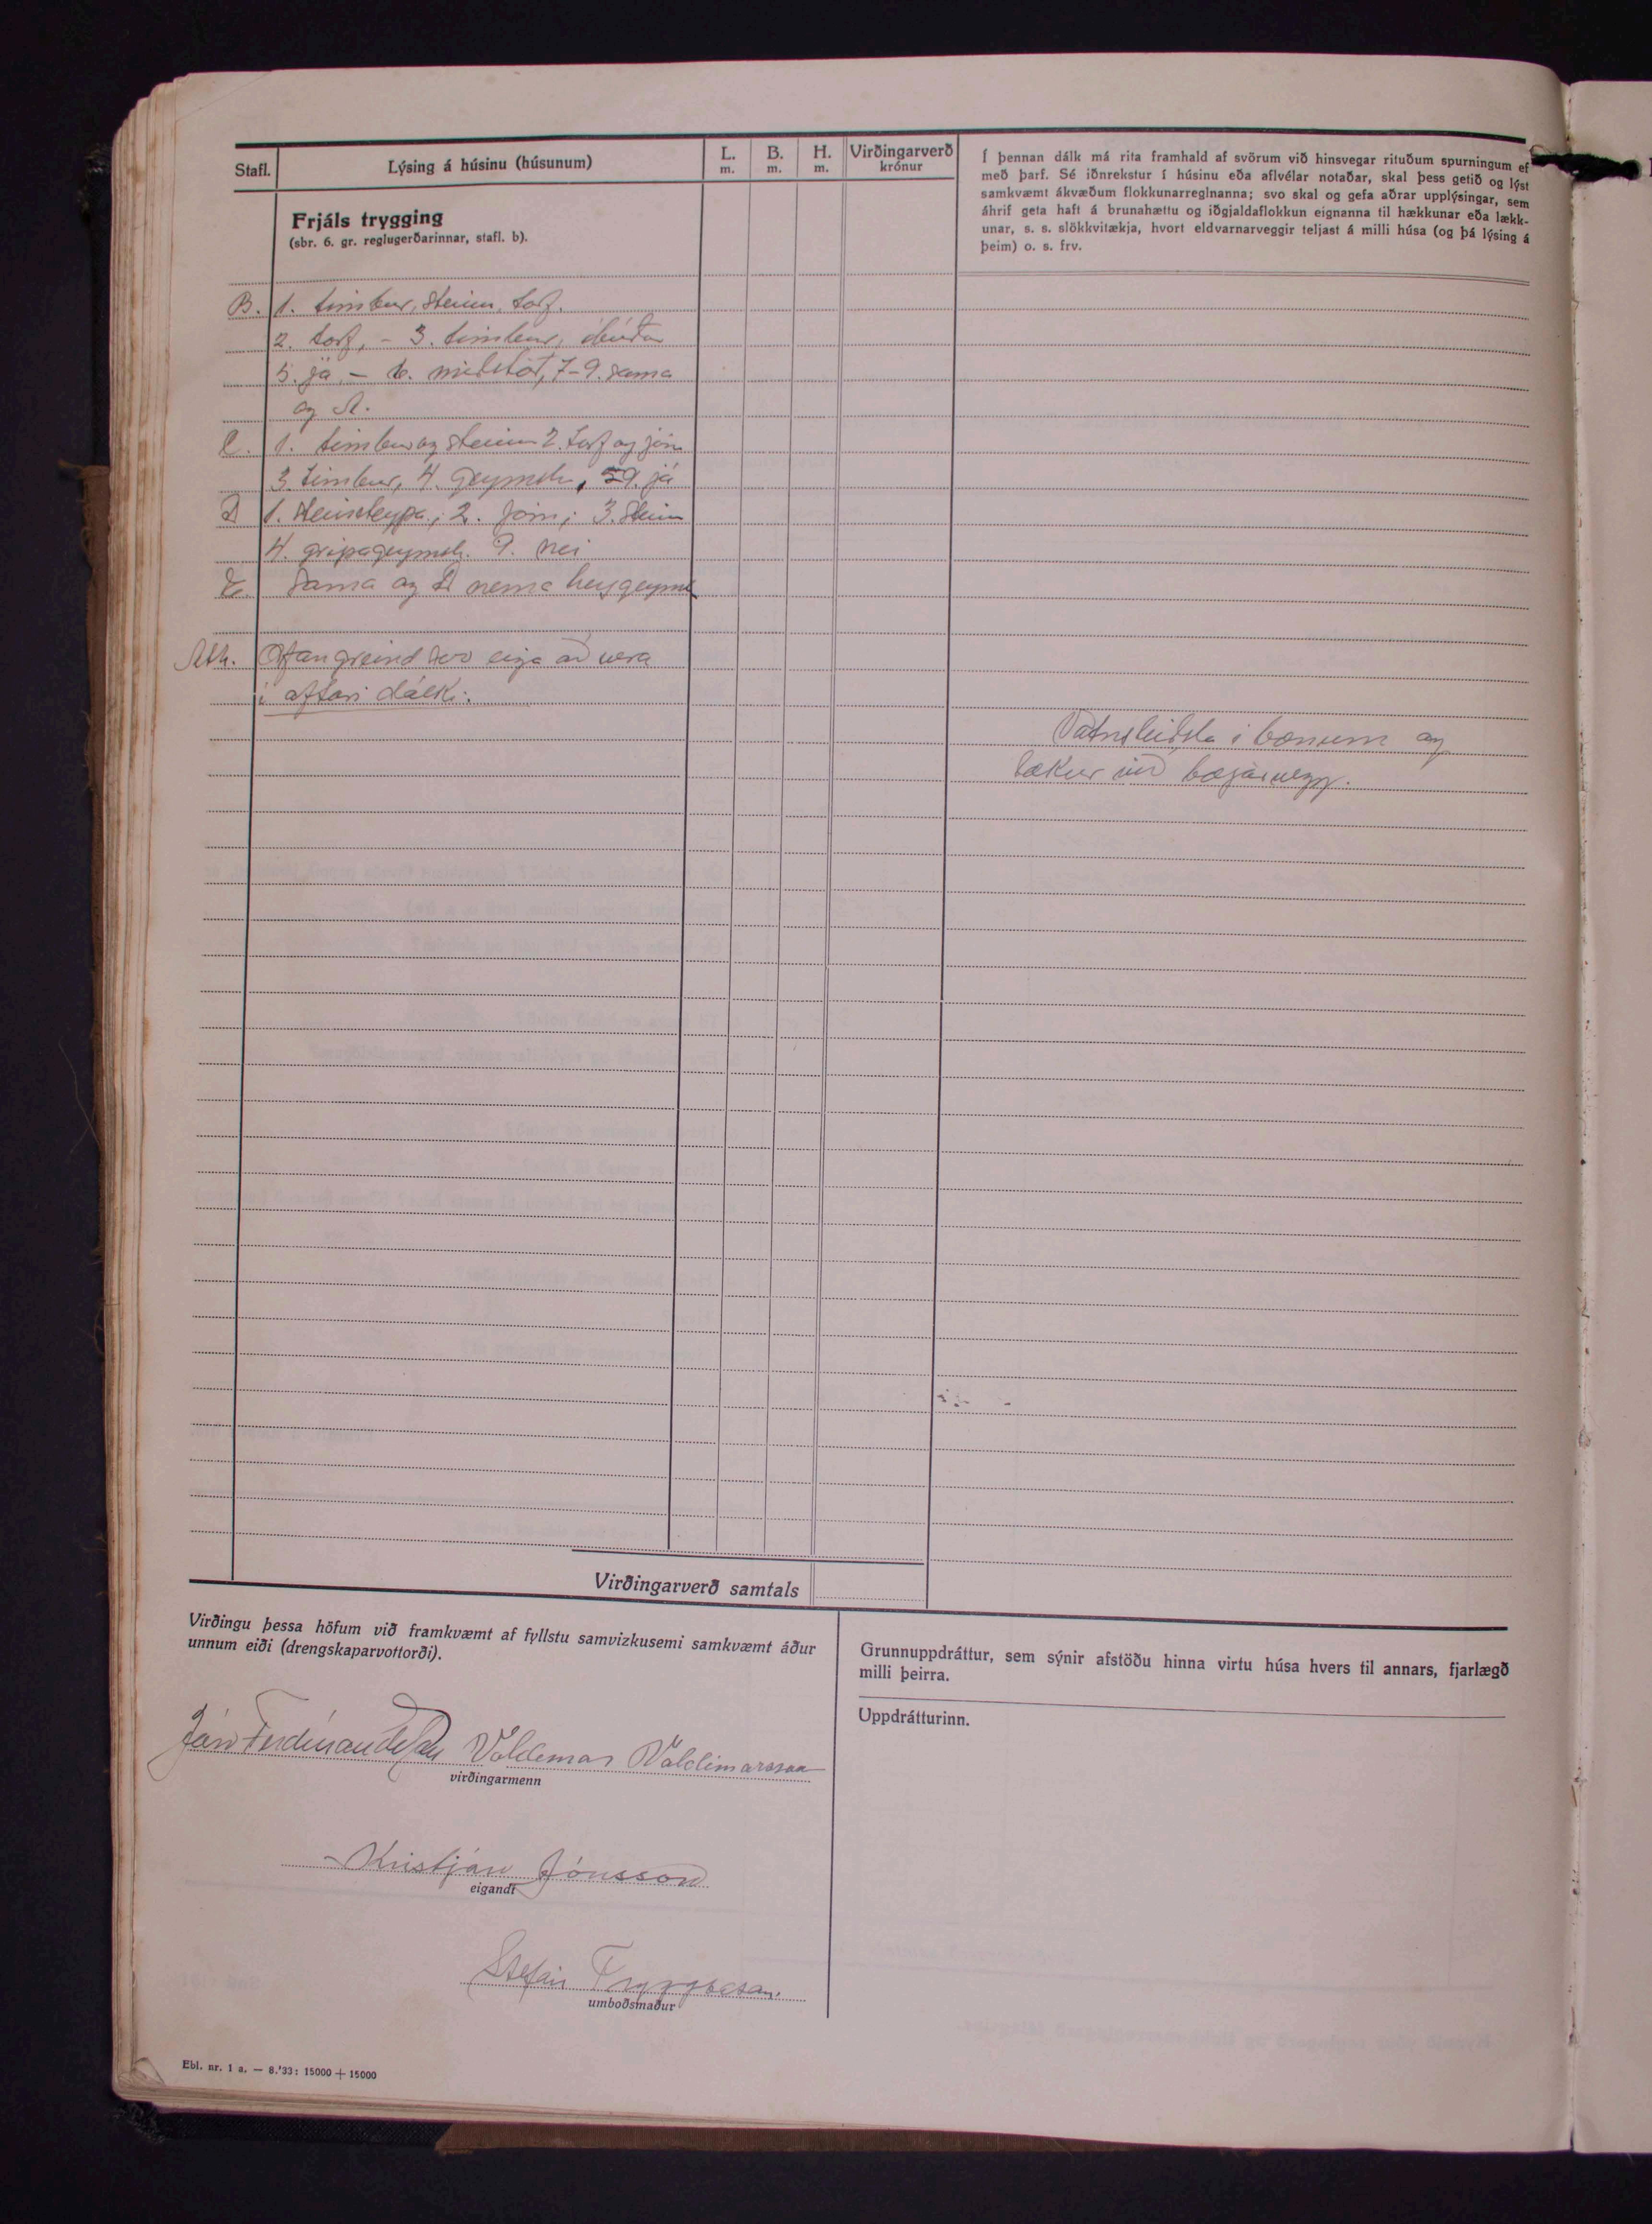 Stafl.
Lýsing á húsinu (húsunum)
L.
m.
B.
m.
H.
m.
Virðingarverð
krónur
Í þennan dálk má rita framhald af svörum við hinsvegar rituðum spurningum ef
með þarf. Sé iðnrekstur í húsinu eða aflvélar notaðar, skal þess getið og lýst
samkvæmt ákvæðum flokkunarreglnanna; svo skal og gefa aðrar upplýsingar, sem
áhrif geta haft á brunahættu og iðgjaldaflokkun eignanna til hækkunar eða lækk-
unar, s. s. slökkvitækja, hvort eldvarnarveggir teljast á milli húsa (og þá lýsing á
þeim) o. s. frv.
Frjáls trygging
(sbr. 6. gr. reglugerðarinnar, stafl. b).
B. 1. timbur, steinn, torf.
2. torf, - 3. timbur, íbúðar
5. já, - 6. miðstöð, 7-9. sama
og A.
C. 1. timbur og steinn 2. torf og járn
3. timbur, 4. geymsla, 9. já
D 1. Steinsteypa; 2. Járn; 3. Steinn
4. gripageymsla. 9. nei
E. Sama og D nema heygeymsl
Ath. Ofangreind svo eiga að vera
í aftari dálki.
Vatnsleiðsla í bænum og
lækur við bæjarvegg.
Virðingarverð samtals
Virðingu þessa höfum við framkvæmt af fyllstu samvizkusemi samkvæmt áður
unnum eiði (drengskaparvottorði).
Jón Ferdínandsson Valdemar Valdimarsson
virðingarmenn
Kristján Jónsson
eigandi
Stefán Tryggvason.
umboðsmaður
Grunnuppdráttur, sem sýnir afstöðu hinna virtu húsa hvers til annars, fjarlægð
milli þeirra.
Uppdrátturinn.
Ebl. nr. 1 a. — 8.'33: 15000 + 15000